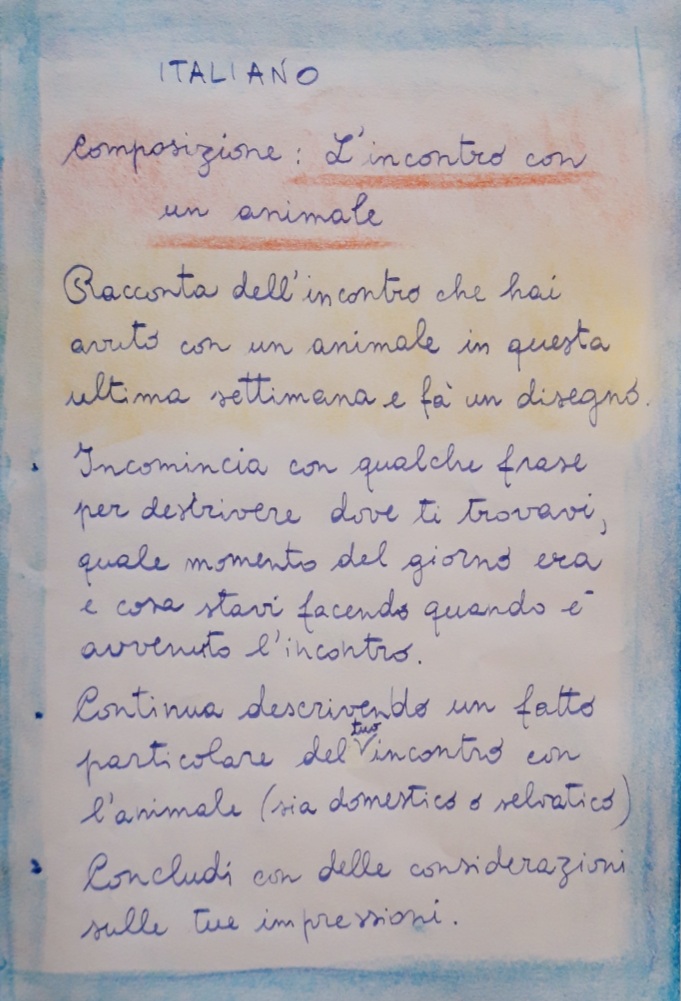 ITALIANO
Composizione: L'incontro con
un animale
Racconta dell'incontro che hai
avuto con un animale in questa
ultima settimana e fà un disegno.
Incomincia con qualche frase
per destrivere dove ti trovavi,
quale momento del giorno era
e cosa stavi facendo quando è
avvenuto l'incontro.
Continua descrivendo un fatto
particolare del tuo incontro con
l'animale (sia domestico o selvatico)
Concludi con delle considerazioni
sulle tue impressioni.